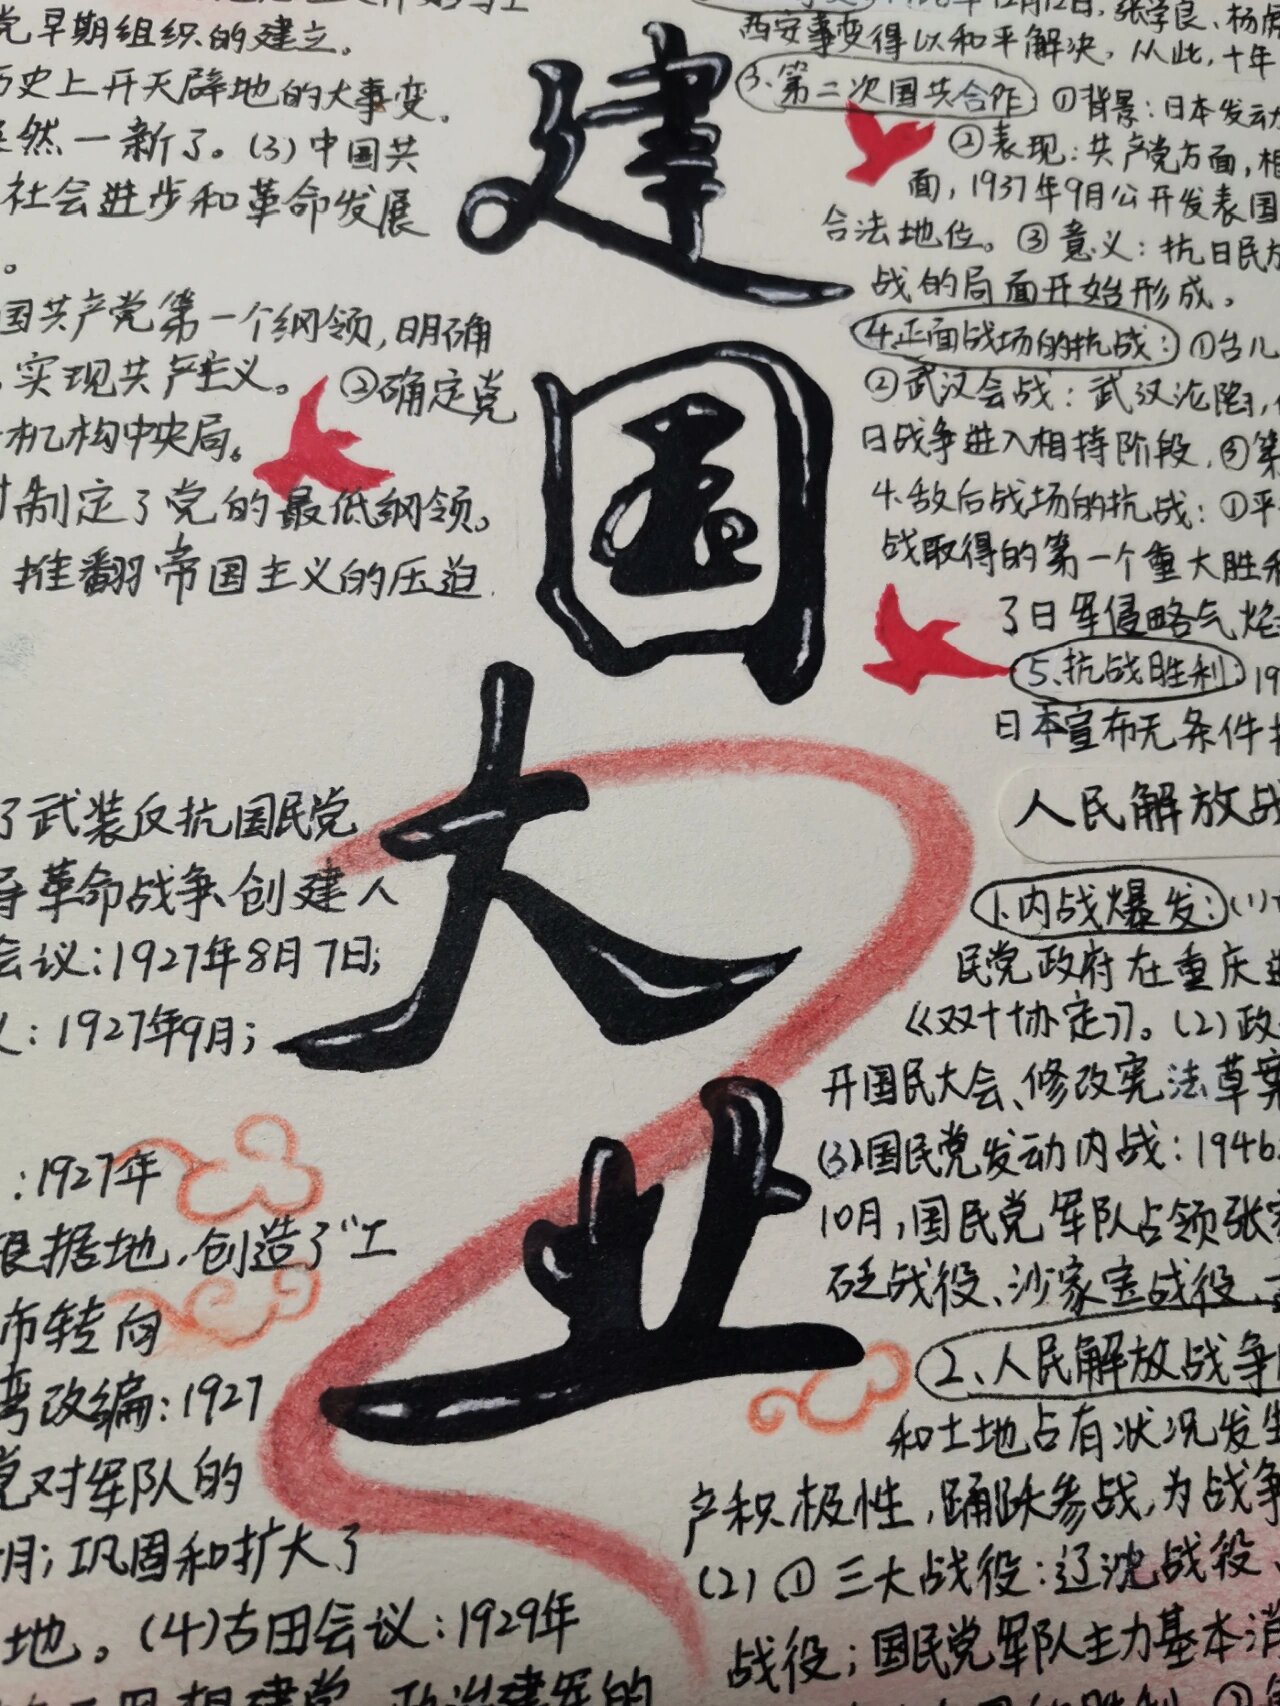 党早期组织的建立。
历史上开天辟地的大事变。
焕然一新了。(3)中国共
社会进步和革命发展
。
国共产党第一个纲领,明确
实现共产主义。 ②确定党
机构中央局。
制定了党的最低纲领。
推翻帝国主义的压迫
了武装反抗国民党
导革命战争、创建人
会议:1927年8月7日;
义:1927年9月;
:1927年
根据地,创造了“工
市转向
湾改编:1927
党对军队的
月;巩固和扩大了
地。(4)古田会议:1929年
思想建党、政治建军的
建
国
大
业
12月12日,张学良、杨虎
西安事变得以和平解决,从此,十年
3.第二次国共合作 ①背景:日本发动
②表现:共产党方面,相
面,1937年9月公开发表国
合法地位。③意义:抗日民族
战的局面开始形成。
4.正面战场的抗战: ①台儿
②武汉会战:武汉沦陷,
日战争进入相持阶段,③第
4.敌后战场的抗战:①平
战取得的第一个重大胜利
了日军侵略气焰
5.抗战胜利: 19
日本宣布无条件投
人民解放战
1.内战爆发: (1)
民党政府在重庆进
《双十协定》。(2)政
开国民大会、修改宪法草案
(3)国民党发动内战:1946
10月,国民党军队占领张家
砭战役、沙家店战役、
2、人民解放战争
和土地占有状况发生
产积极性,踊跃参战,为战争
(2)①三大战役:辽沈战役、
战役;国民党军队主力基本消